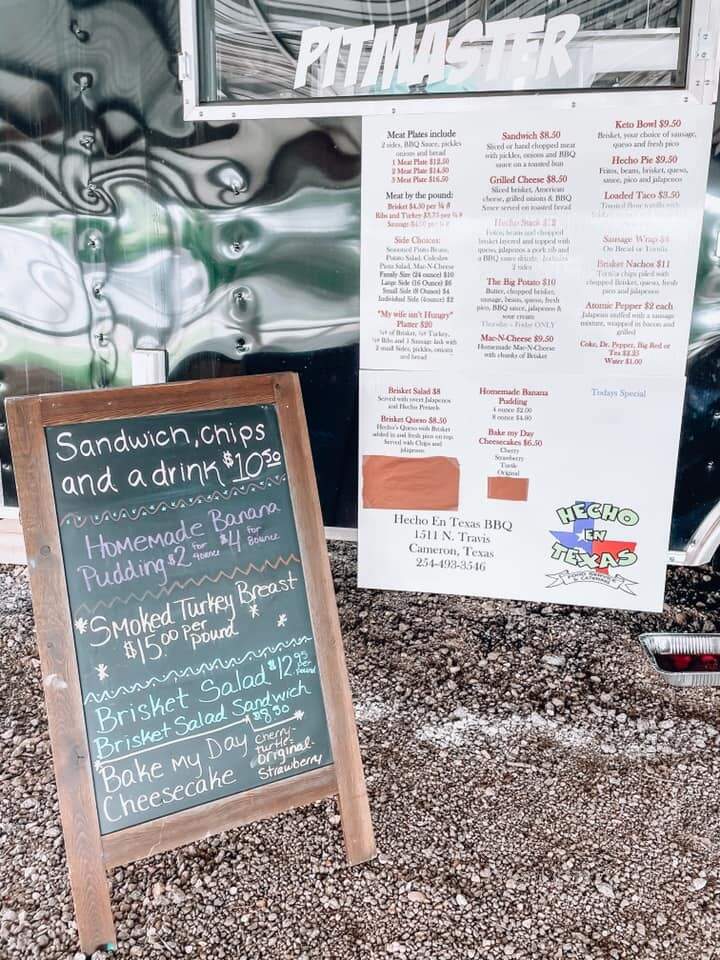 PITMASTER
Meat Plates include
2 sides, BBQ Sauce, pickles
onions and bread
1 Meat Plate $12.50
2 Meat Plate $14.50
3 Meat Plate $16.50
Meat by the pound:
Brisket $4.50 per ¼ #
Ribs and Turkey $3.75 per ¼ #
Sausage
Side Choices:
Seasoned Pinto Beans,
Potato Salad, Coleslaw
Pasta Salad, Mac-N-Cheese
Family Size (24 ounce) $10
Large Side (16 Ounce) $6
Small Side (8 Ounce) $4
Individual Side (4ounce) $2
"My wife isn't Hungry"
Platter $20
¼# of Brisket, ¼# Turkey,
¼# Ribs and 1 Sausage link with
2 small Sides, pickles, onions
and bread
Sandwich $8.50
Sliced or hand chopped meat
with pickles, onions and BBQ
sauce on a toasted bun
Grilled Cheese $8.50
Sliced brisket, American
cheese, grilled onions & BBQ
Sauce served on toasted bread
Hecho Stack $12
Fritos, beans and chopped
brisket layered and topped with
queso, jalapenos a pork rib and
a BBQ sauce drizzle. Includes
2 sides
The Big Potato $10
Butter, chopped brisket,
sausage, beans, queso, fresh
pico, BBQ sauce, jalapenos &
sour cream
Thursday - Friday ONLY
Mac-N-Cheese $9.50
Homemade Mac-N-Cheese
with chunks of Brisket
Keto Bowl $9.50
Brisket, your choice of sausage,
queso and fresh pico
Hecho Pie $9.50
Fritos, beans, brisket, queso,
sauce, pico and jalapenos
Loaded Taco $3.50
Toasted flour tortilla with
Sausage Wrap $4
On Bread or Tortilla
Brisket Nachos $11
Tortilla chips piled with
chopped Brisket, queso, fresh
pico and jalapenos
Atomic Pepper $2 each
Jalapeno stuffed with a sausage
mixture, wrapped in bacon and
grilled
Coke, Dr. Pepper, Big Red or
Tea $2.25
Water $1.00
Brisket Salad $8
Served with sweet Jalapenos
and Hecho Pretzels
Brisket Queso $8.50
Hecho's Queso with Brisket
added in and fresh pico on top.
Served with Chips and
jalapenos
Homemade Banana
Pudding
4 ounce $2.00
8 ounce $4.00
Bake my Day
Cheesecakes $6.50
Cherry
Strawberry
Turtle
Original
Todays Special
Hecho En Texas BBQ
1511 N. Travis
Cameron, Texas
254-493-3546
HECHO
EN
TEXAS
& CATERING
Sandwich, chips
and a drink $10.50
Homemade Banana
Pudding $2 for 4ounce $4 for 8ounce
*Smoked Turkey Breast*
* $15.00 per pound *
Brisket Salad $12.95 per pound
Brisket Salad Sandwich
$8.50
Bake my Day
Cheesecake
cherry-
turtle-
original-
Strawberry